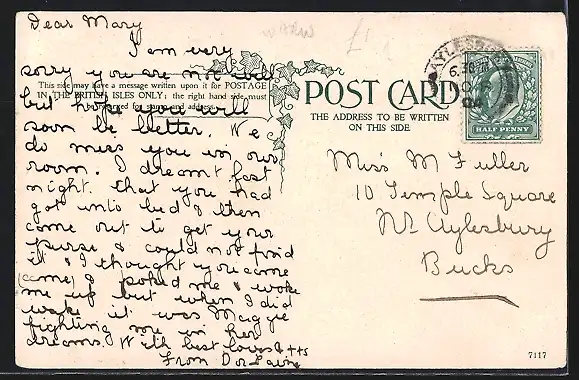 Dear Mary
I am very
sorry you are not well
but hope you will
soon be better. We
do miss you in our
room. I dreamt last
night that you had
got into bed & then
come out to get your
purse & could not find
it & I thought you came
(came) & poked me & woke
me up but when I did
wake it was Maggie
fighting me in her
dreams. With best loves & ++s
From
This side may have a message written upon it for POSTAGE
IN THE BRITISH ISLES ONLY; the right hand side must
be reserved for stamp and address.
POST CARD
THE ADDRESS TO BE WRITTEN
ON THIS SIDE.
AYLESB
6.30 PM
HALF PENNY
Miss M Fuller
10 Temple Square
Nr Aylesbury
Bucks
7117